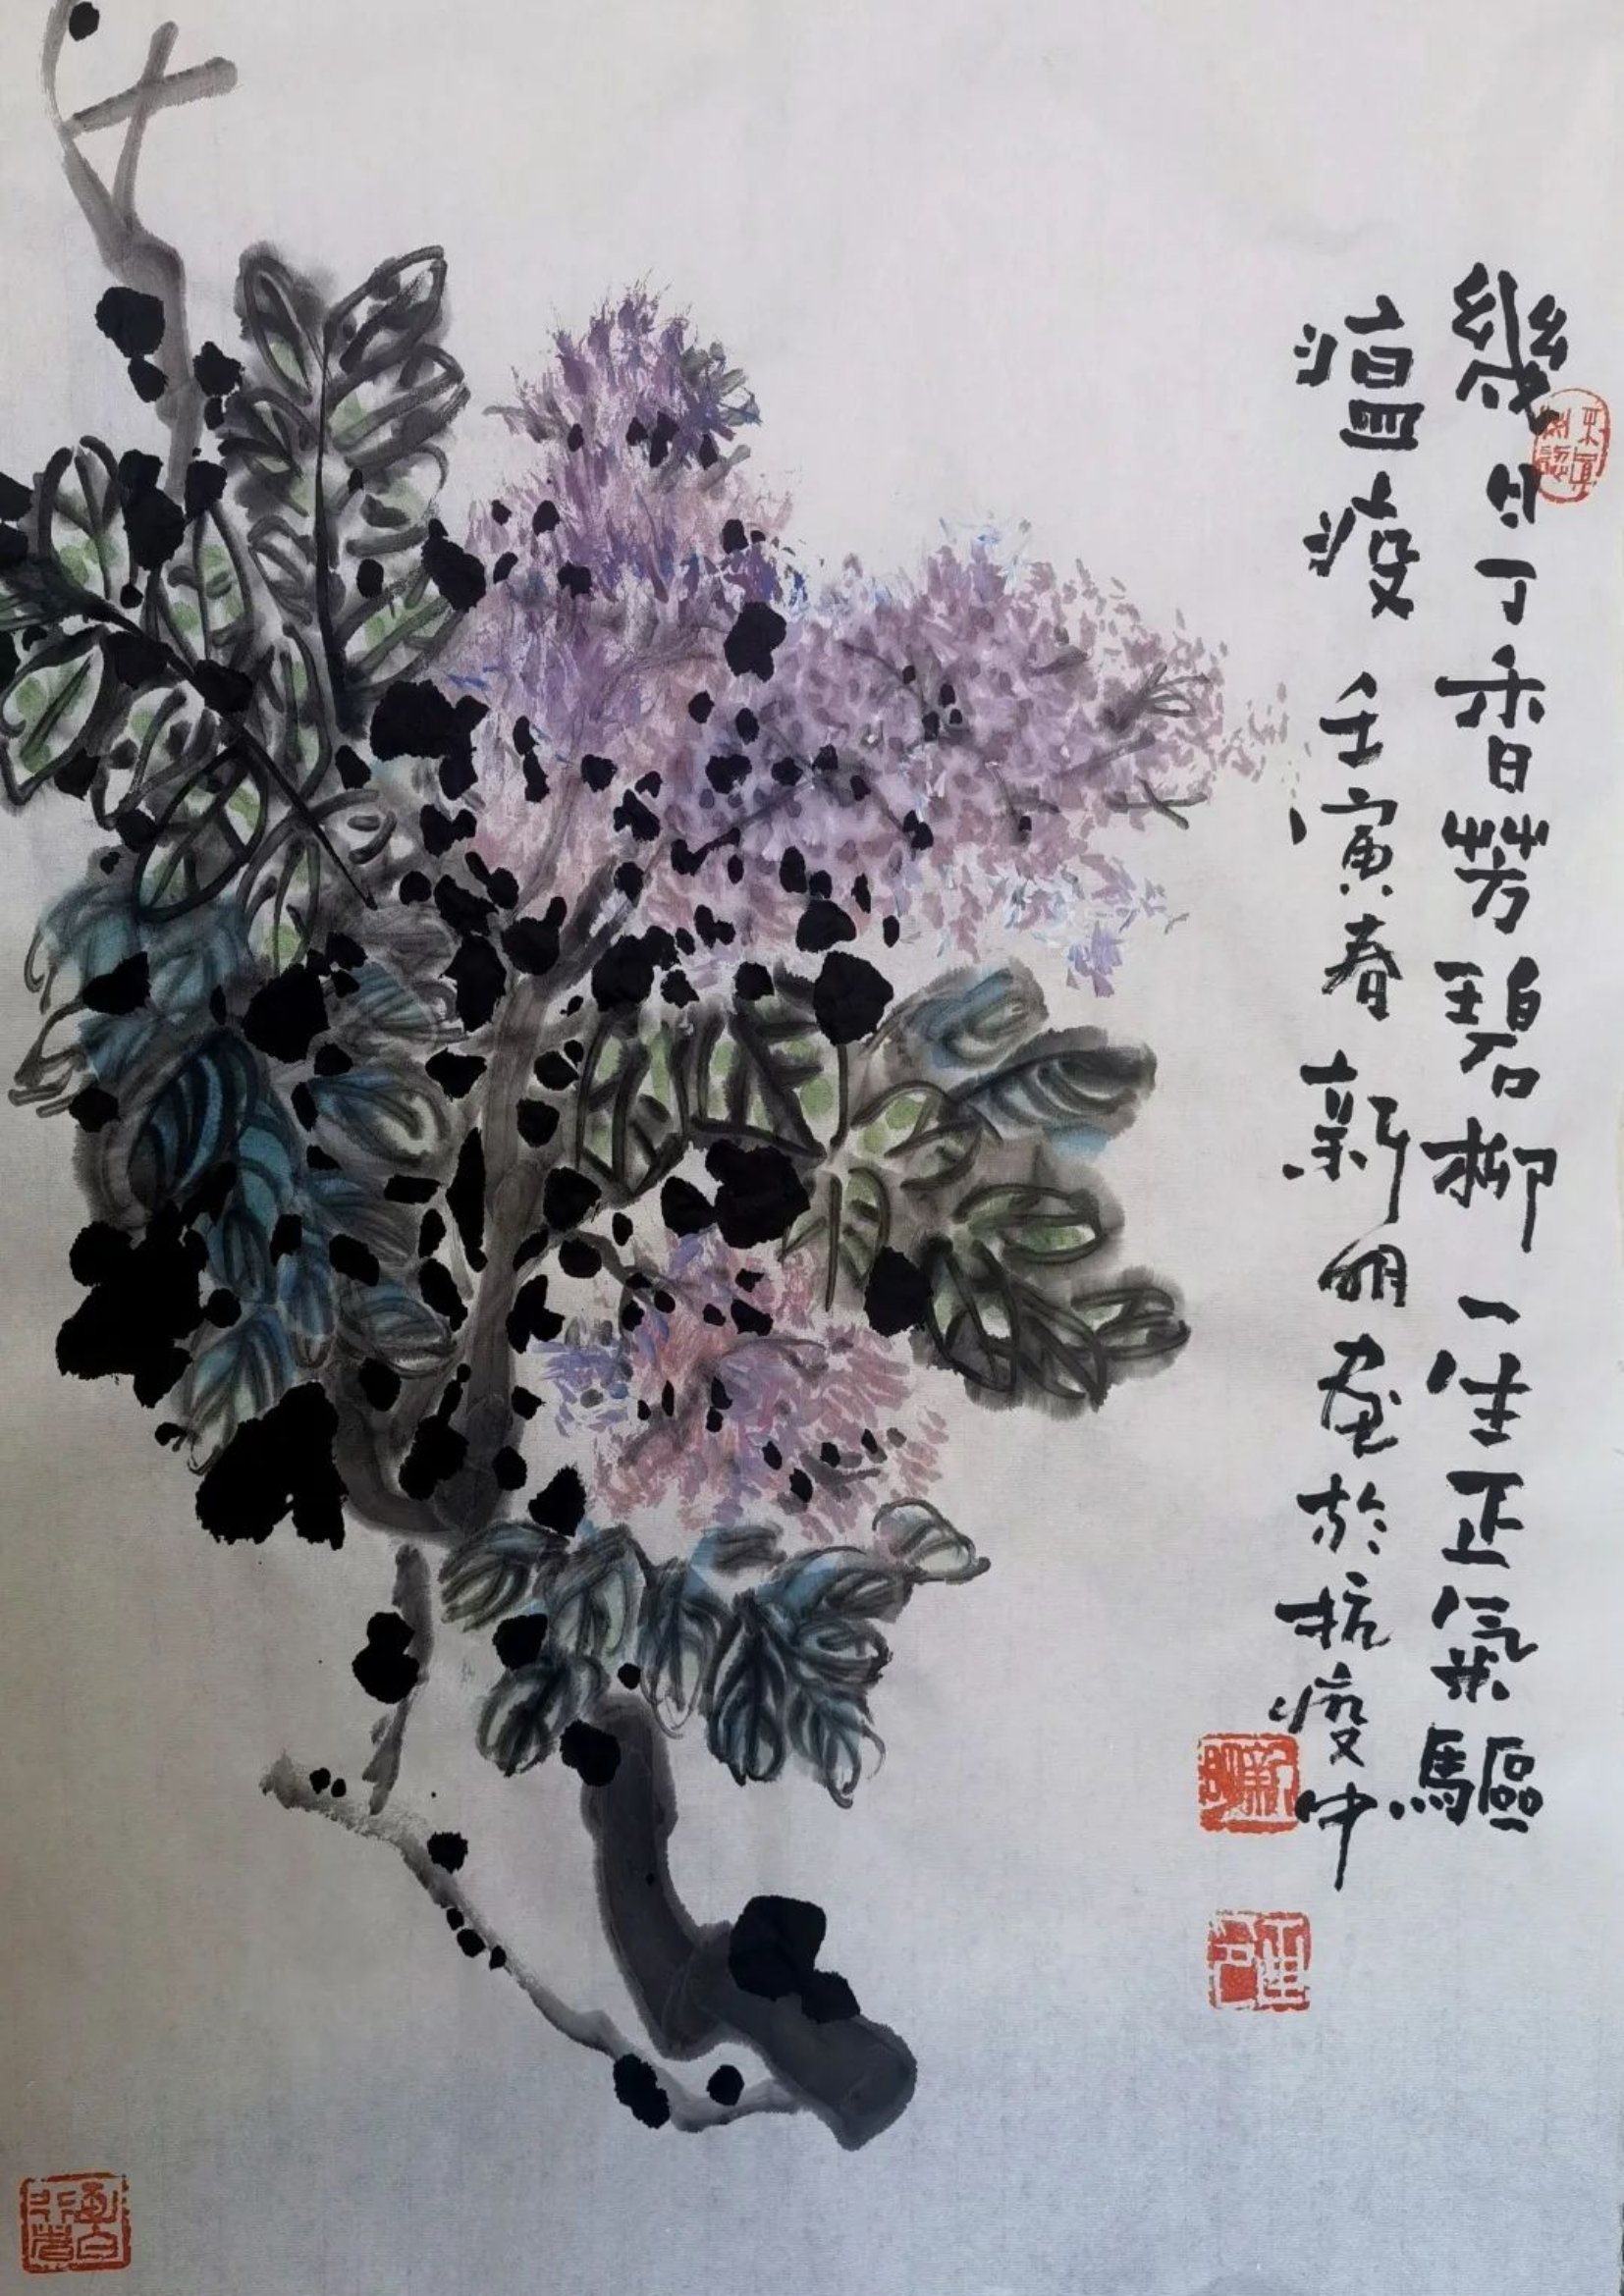 幾日丁香芳碧柳一生正氣驅
瘟疫 壬寅春 新明畫於抗疫中
新明